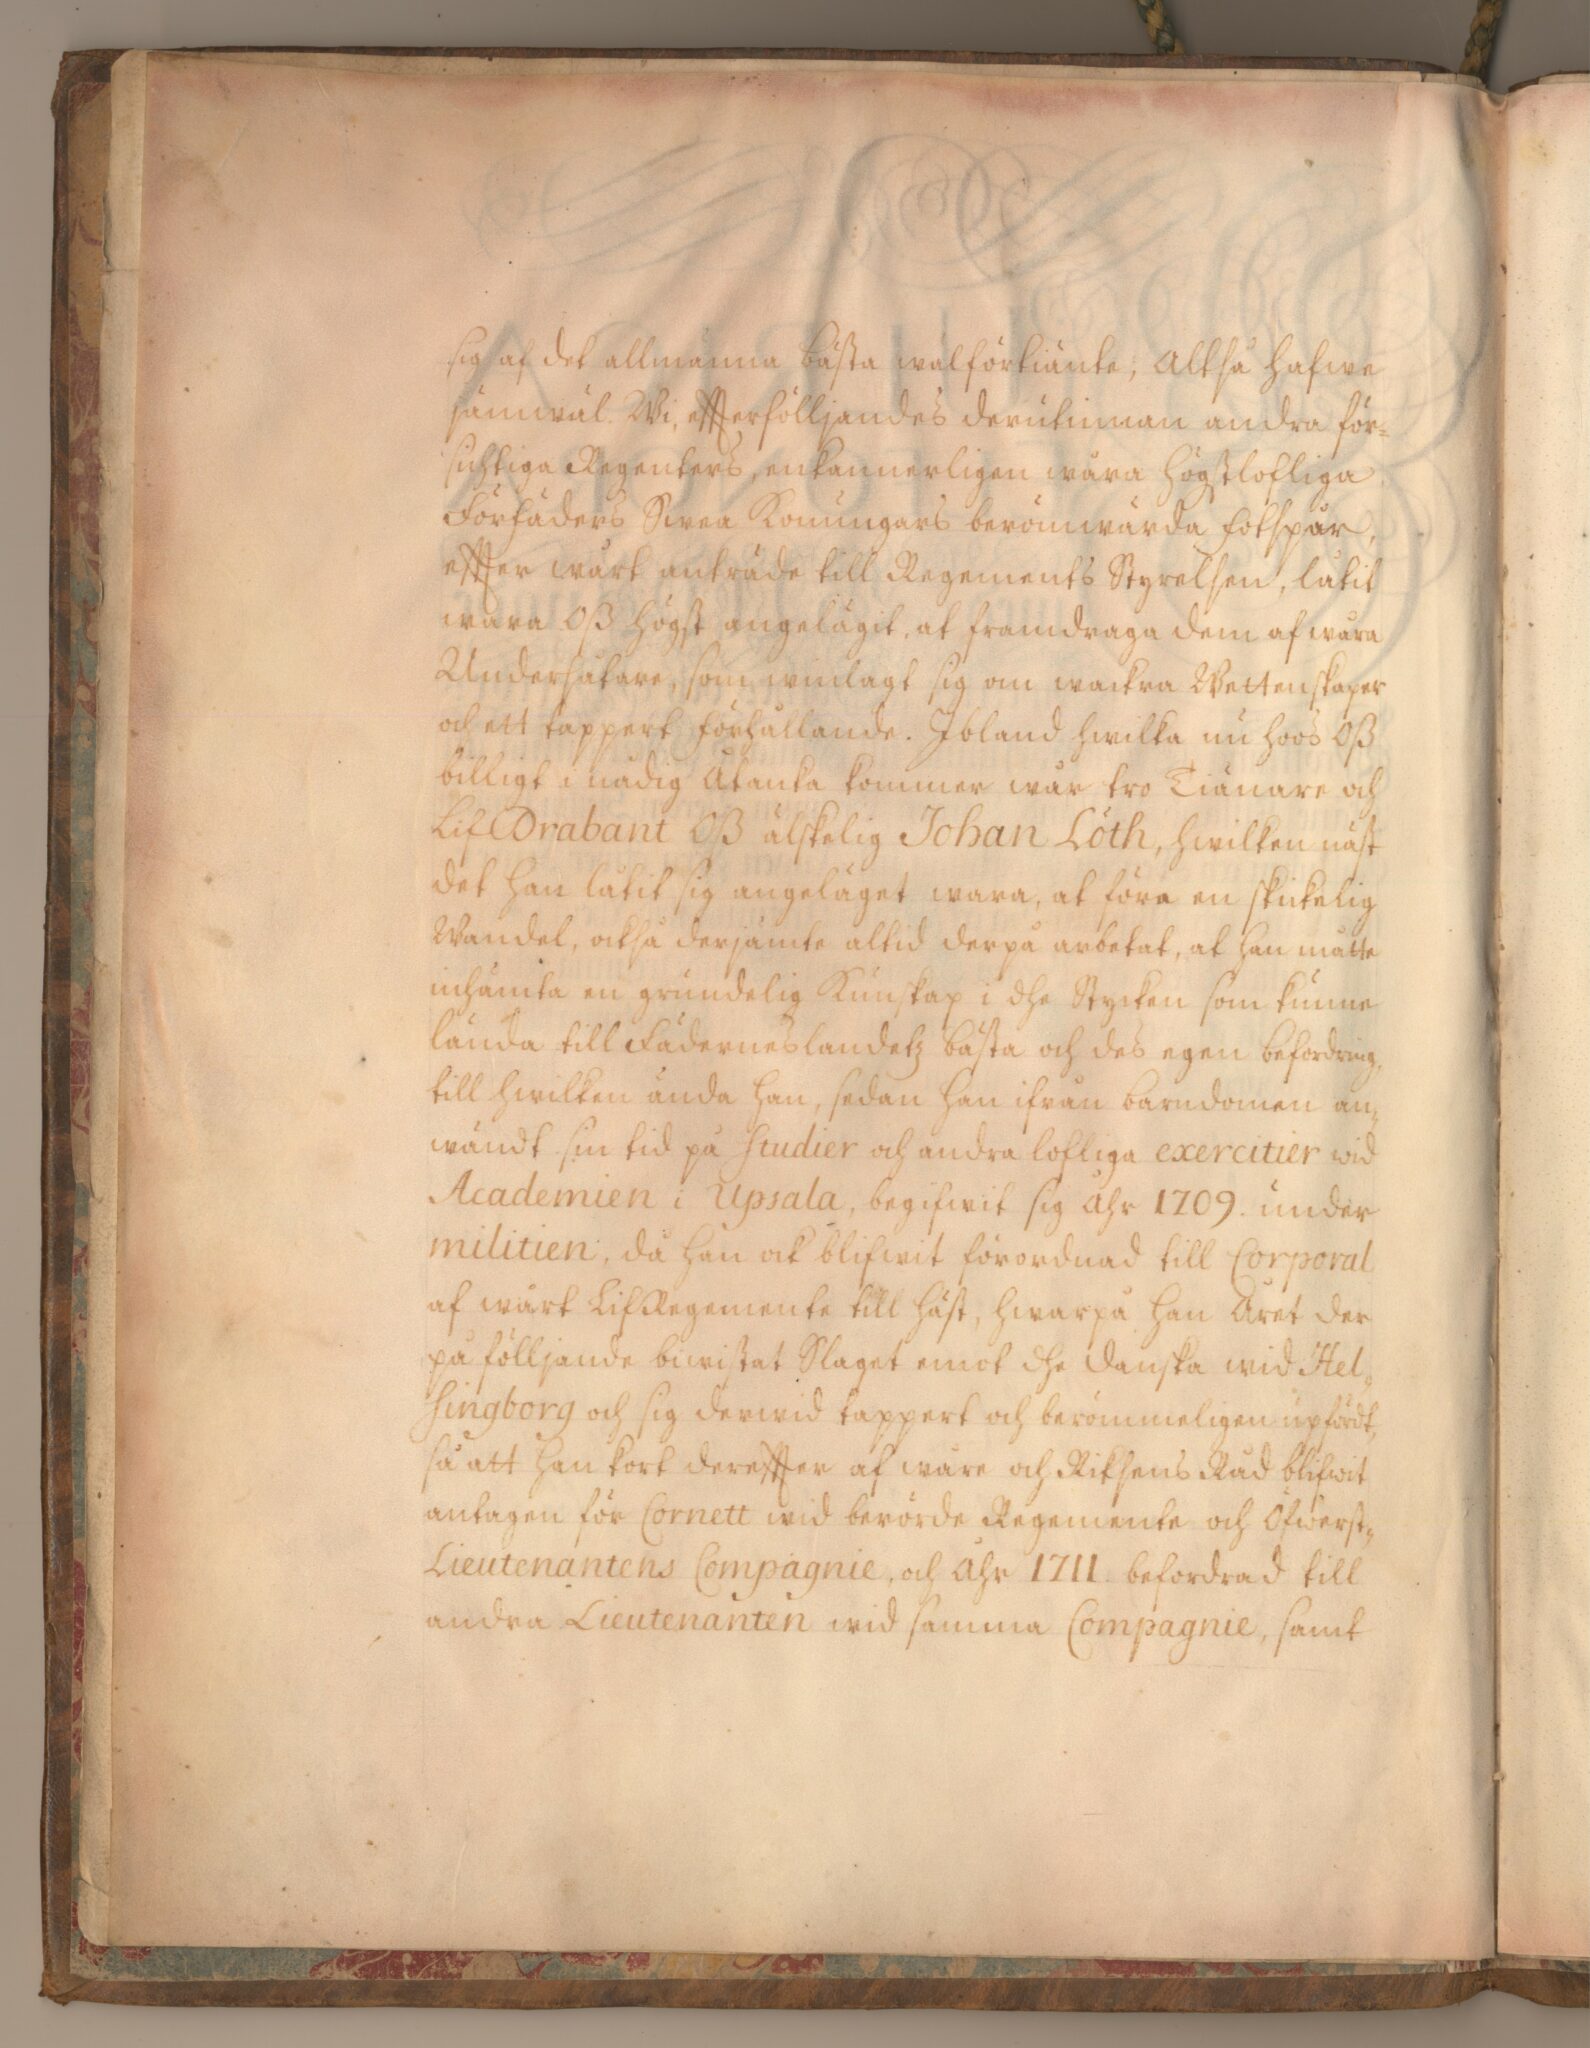 sig af det allmänna bästa wälförtiänte; Altså hafwe
jämwäl Wi, effterfölljandes derutinnan andra för-
sichtiga Regenters, enkannerligen wåra högstlofliga
Förfäders Swea Konungars berömwärda fotspår,
effter wårt anträde till Regements Styrelsen, låtit
wara Oß högst angelägit, at framdraga dem af wåra
Undersåtare, som winlagt sig om wackra Wettenskaper
och ett tappert förhållande. Ibland hwilka nu hoos Oß
billigt i nådig åtanka kommer wår tro Tiänare och
Lif Drabant Oß älskelig Johan Löth, hwilken näst
det han låtit sig angeläget wara, at föra en skickelig
Wandel, också derjämte altid derpå arbetat, at han måtte
inhämta en grundelig Kunskap i dhe Stycken som kunne
lända till Fäderneslandetz bästa och des egen befordring,
till hwilken ända han, sedan han ifrån barndomen an-
wändt sin tid på studier och andra lofliga exercitier wid
Academien i Upsala, begifwit sig åhr 1709. under
militien, då han ock blifwit förordnad till Corporal
af wårt LifRegemente till häst, hwarpå han åhret der
på fölljande biwistat Slaget emot dhe Danska wid Hel-
singborg och sig derwid tappert och berömmeligen upfördt,
så att han kort dereffter af wåre och Riksens Råd blifwit
antagen för Cornett wid berörde Regemente och Öfwerst-
Lieutenantens Compagnie, och åhr 1711. befordrad till
andra Lieutenanten wid samma Compagnie, samt